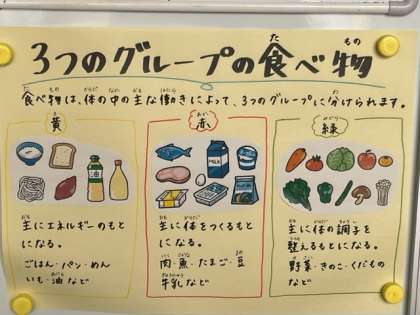 3つのグループの食べ物
食べ物は、体の中の主な働きによって、3つのグループに分けられます。
黄
主にエネルギーのもと
になる。
ごはん・パン・めん
いも・油など
赤
牛乳
主に体をつくるもと
になる。
肉・魚・たまご・豆
牛乳など
緑
主に体の調子を
整えるもとになる。
野菜・きのこ・くだもの
など